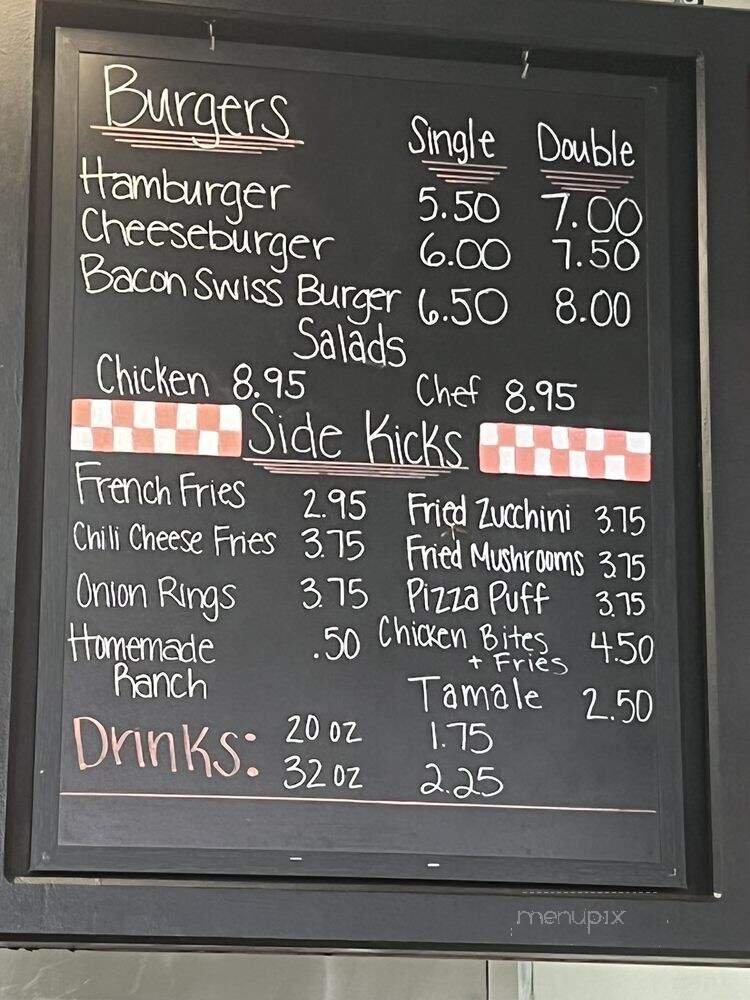 Burgers
Single Double
Hamburger 5.50 7.00
Cheeseburger 6.00 7.50
Bacon Swiss Burger 6.50 8.00
Salads
Chicken 8.95 Chef 8.95
Side Kicks
French Fries 2.95 Fried Zucchini 3.75
Chili Cheese Fries 3.75 Fried Mushrooms 3.75
Onion Rings 3.75 Pizza Puff 3.75
Homemade Ranch .50 Chicken Bites + Fries 4.50
Tamale 2.50
Drinks: 20 oz 1.75
32 oz 2.25
menupix